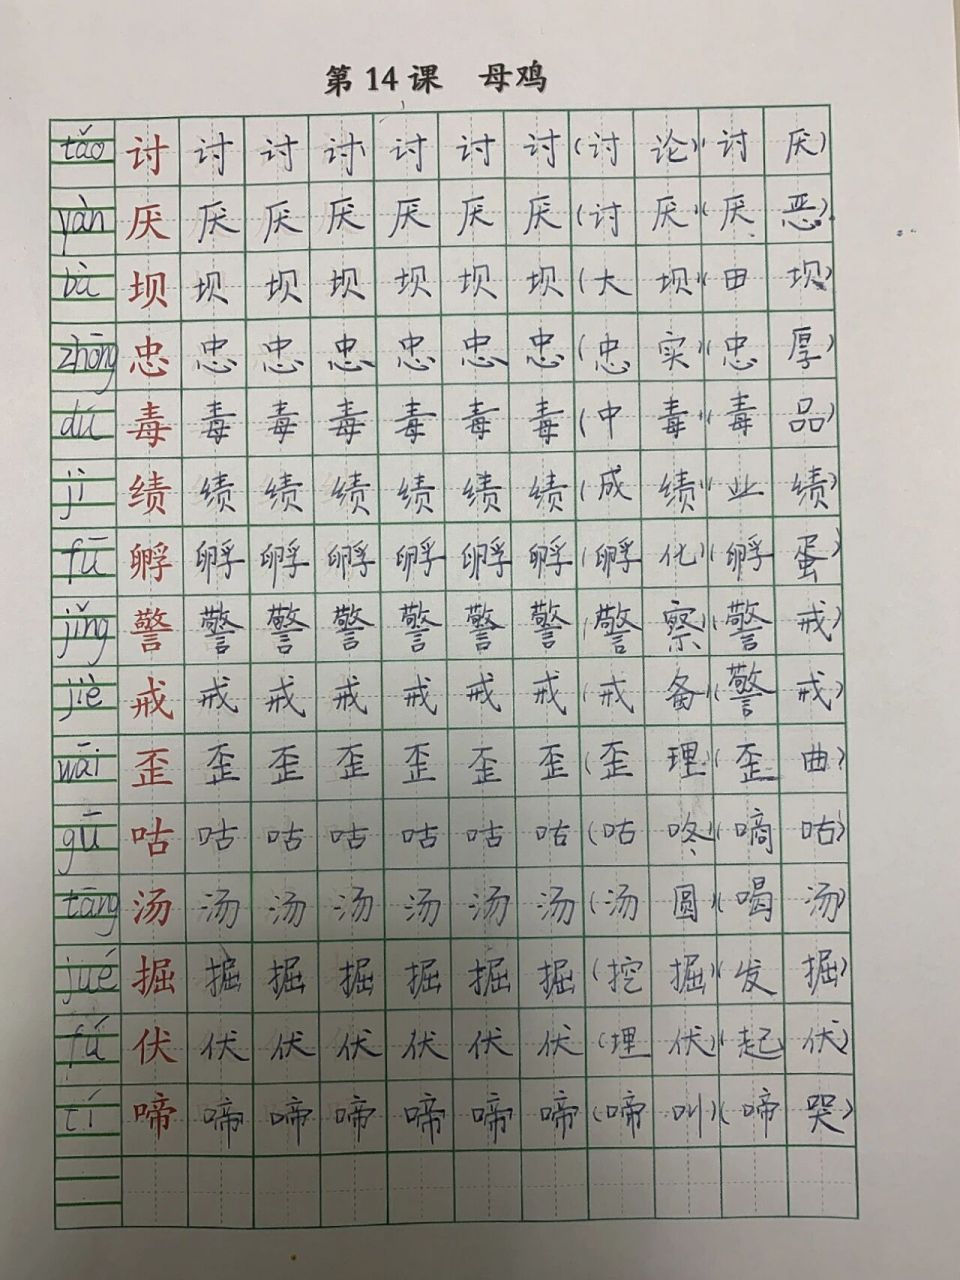 第14课 母鸡
tǎo 讨 讨 讨 讨 讨 讨 讨 (讨论)(讨厌)
yàn 厌 厌 厌 厌 厌 厌 厌 (讨厌)(厌恶)
bà 坝 坝 坝 坝 坝 坝 坝 (大坝)(田坝)
zhōng 忠 忠 忠 忠 忠 忠 忠 (忠实)(忠厚)
dú 毒 毒 毒 毒 毒 毒 毒 (中毒)(毒品)
jì 绩 绩 绩 绩 绩 绩 绩 (成绩)(业绩)
fū 孵 孵 孵 孵 孵 孵 孵 (孵化)(孵蛋)
jǐng 警 警 警 警 警 警 警 (警察)(警戒)
jiè 戒 戒 戒 戒 戒 戒 戒 (戒备)(警戒)
wāi 歪 歪 歪 歪 歪 歪 歪 (歪理)(歪曲)
gū 咕 咕 咕 咕 咕 咕 咕 (咕咚)(嘀咕)
tāng 汤 汤 汤 汤 汤 汤 汤 (汤圆)(喝汤)
jué 掘 掘 掘 掘 掘 掘 掘 (挖掘)(发掘)
fú 伏 伏 伏 伏 伏 伏 伏 (埋伏)(起伏)
tí 啼 啼 啼 啼 啼 啼 啼 (啼叫)(啼哭)